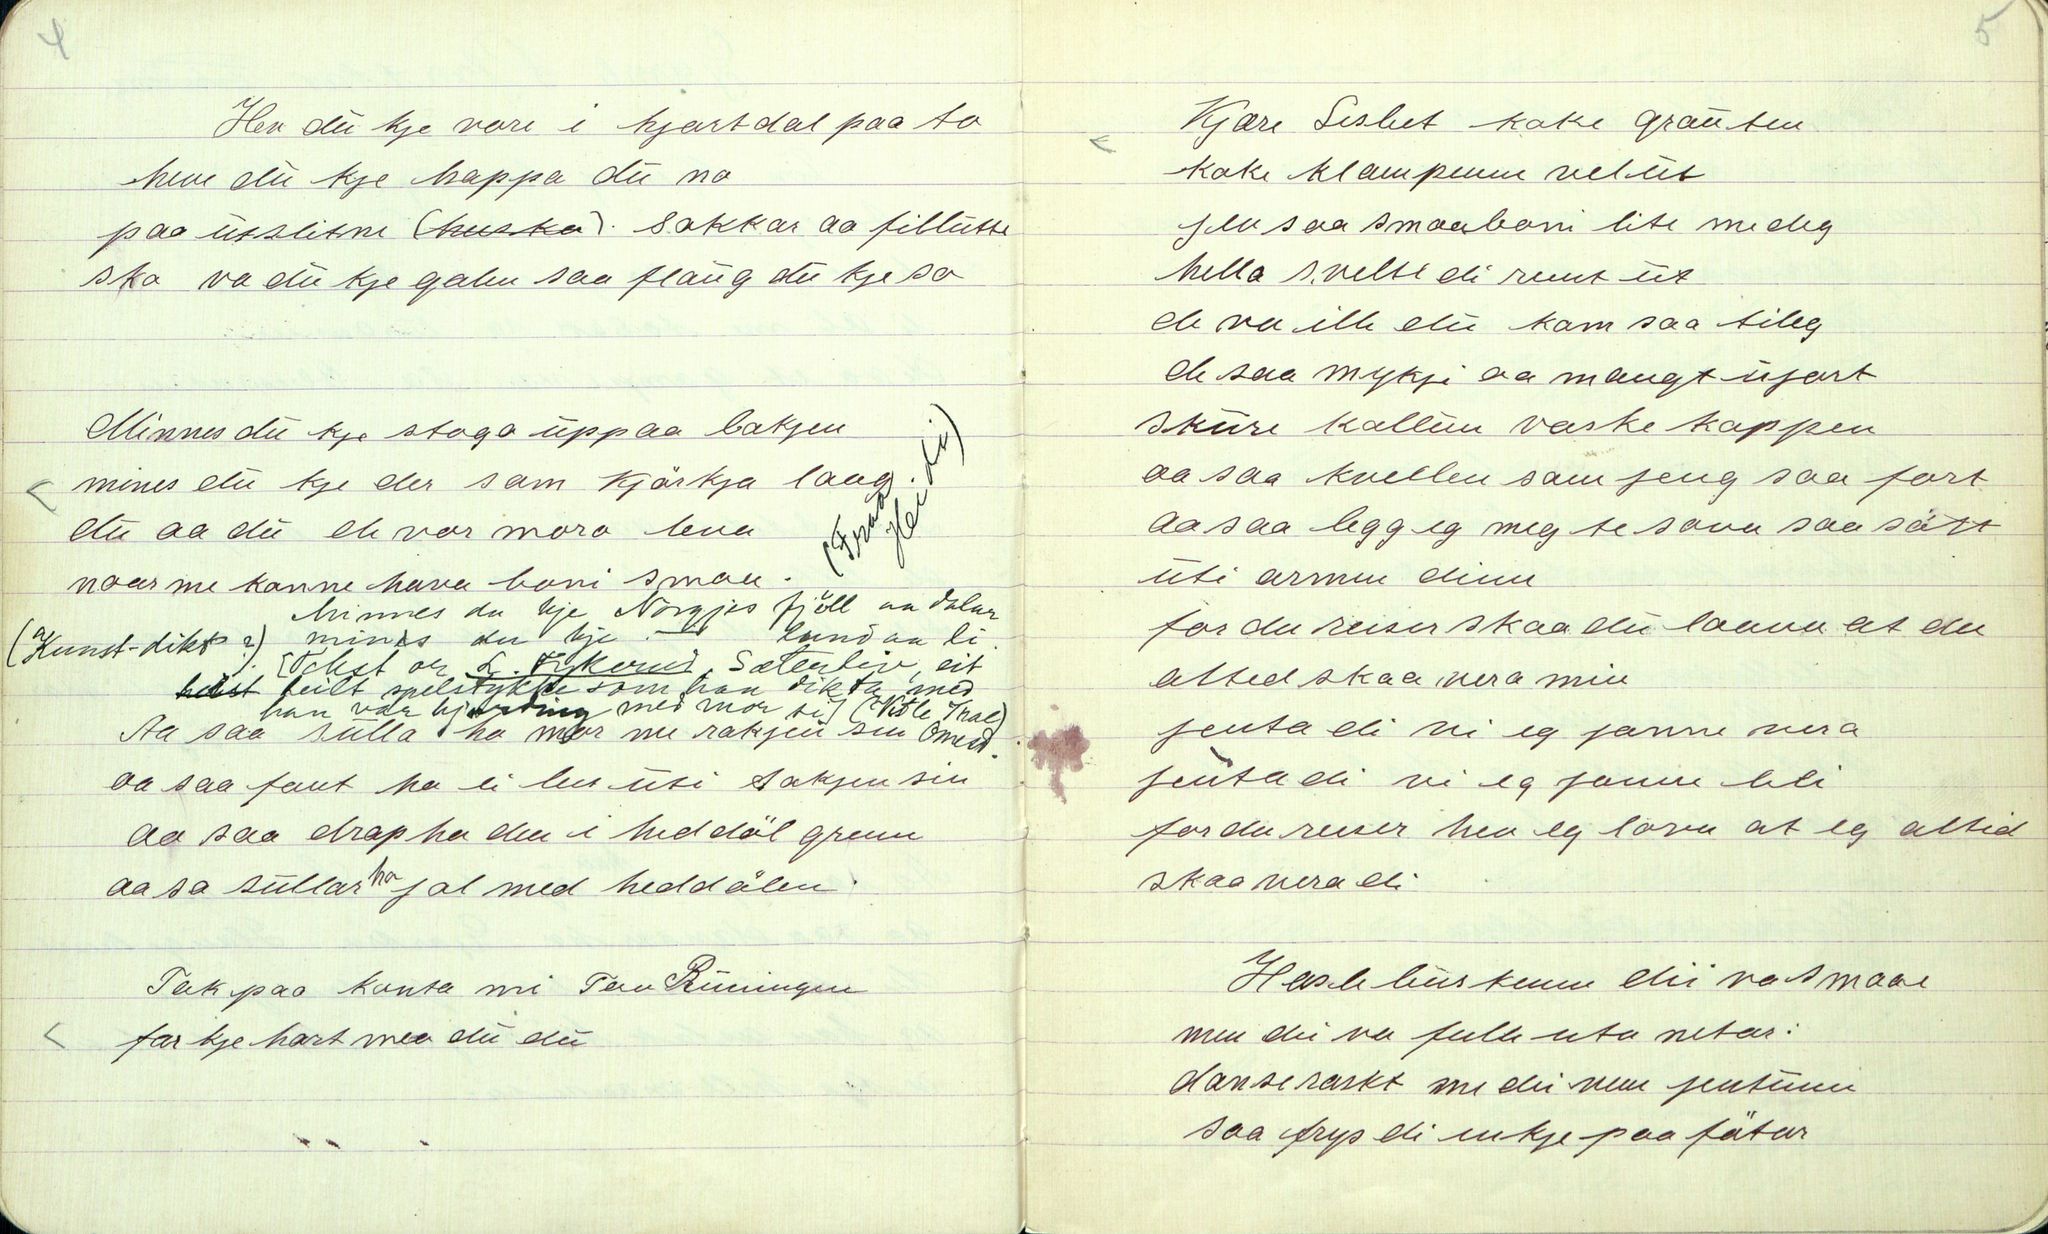 4
Hev dü kje vore i hjartdal paa ta
heve dü kje happa dü na
paa ütslitne (huska). Sokkar aa fillütte
ska va dü kje galen saa flaüg dü kje sa
Minnes dü kje stoga üppaa bakjen
mines dü kje der som kjörkja laag.
dü aa dü de var mora leva
naar me kanne hava boni smaa.
Minnes du kje Norgjes fjöll aa dalar
(Kunst-dikt?) mines du kje — land aa li.
som han dikta med
han var med mor si]
Aa saa sülla ha mor me rakjen sin
aa saa fant ha ei lus üti sakjen sin
aa saa drap ha den i heddöl grenn
aa sa süllar ha jal med heddölen.
Tak paa konta mi Tav Rüningen
far kje hart mea dü dü
5
Kjære Lisbet koke graüten
koke klampenne vel üt
jev saa smaaboni lite me deg
hella svelte di runt üt
de va ille dü kom saa tileg
de saa mykji aa mangt üjort
sküre kallün vaske koppen
aa saa kvellen som jeng saa fort
aa saa legg eg meg te sova saa sött
üti armen dinn
for du reiser skaa dü laava at du
alted skaa vera min
jenta di vi eg janne vera
jenta di vi eg janne bli
for du reiser hev eg lova at eg altid
skaa vera di
Haslebüskenn dii va smaae
men dii va fulle uta netar:
danse raskt me dii venn jentünn
saa frys di inkje paa fötar